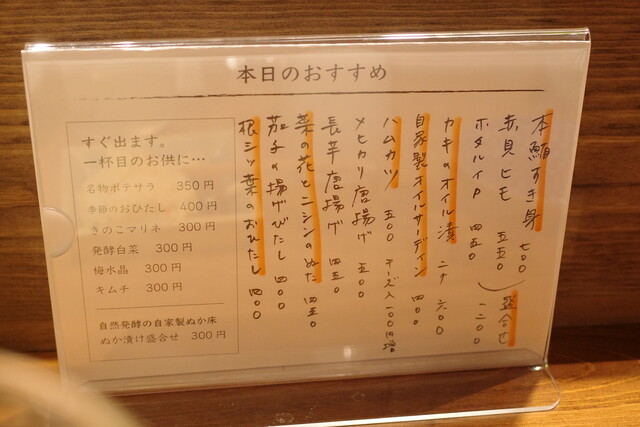 本日のおすすめ
本鮪すき身 七〇〇
赤貝ヒモ 五五〇
ホタルイカ 四五〇
盛合せ 一二〇〇
カキのオイル漬 二ケ 六〇〇
自家製オイルサーディン 四〇〇
ハムカツ 五〇〇 チーズ入 100円増
メヒカリ唐揚げ 五〇〇
長芋唐揚げ 四五〇
菜の花とニシンのぬた 四五〇
茄子の揚げびたし 四〇〇
根ミツ葉のおひたし 四〇〇
すぐ出ます。
一杯目のお供に…
名物ポテサラ 350円
季節のおひたし 400円
きのこマリネ 300円
発酵白菜 300円
梅水晶 300円
キムチ 300円
自然発酵の自家製ぬか床
ぬか漬け盛合せ 300円